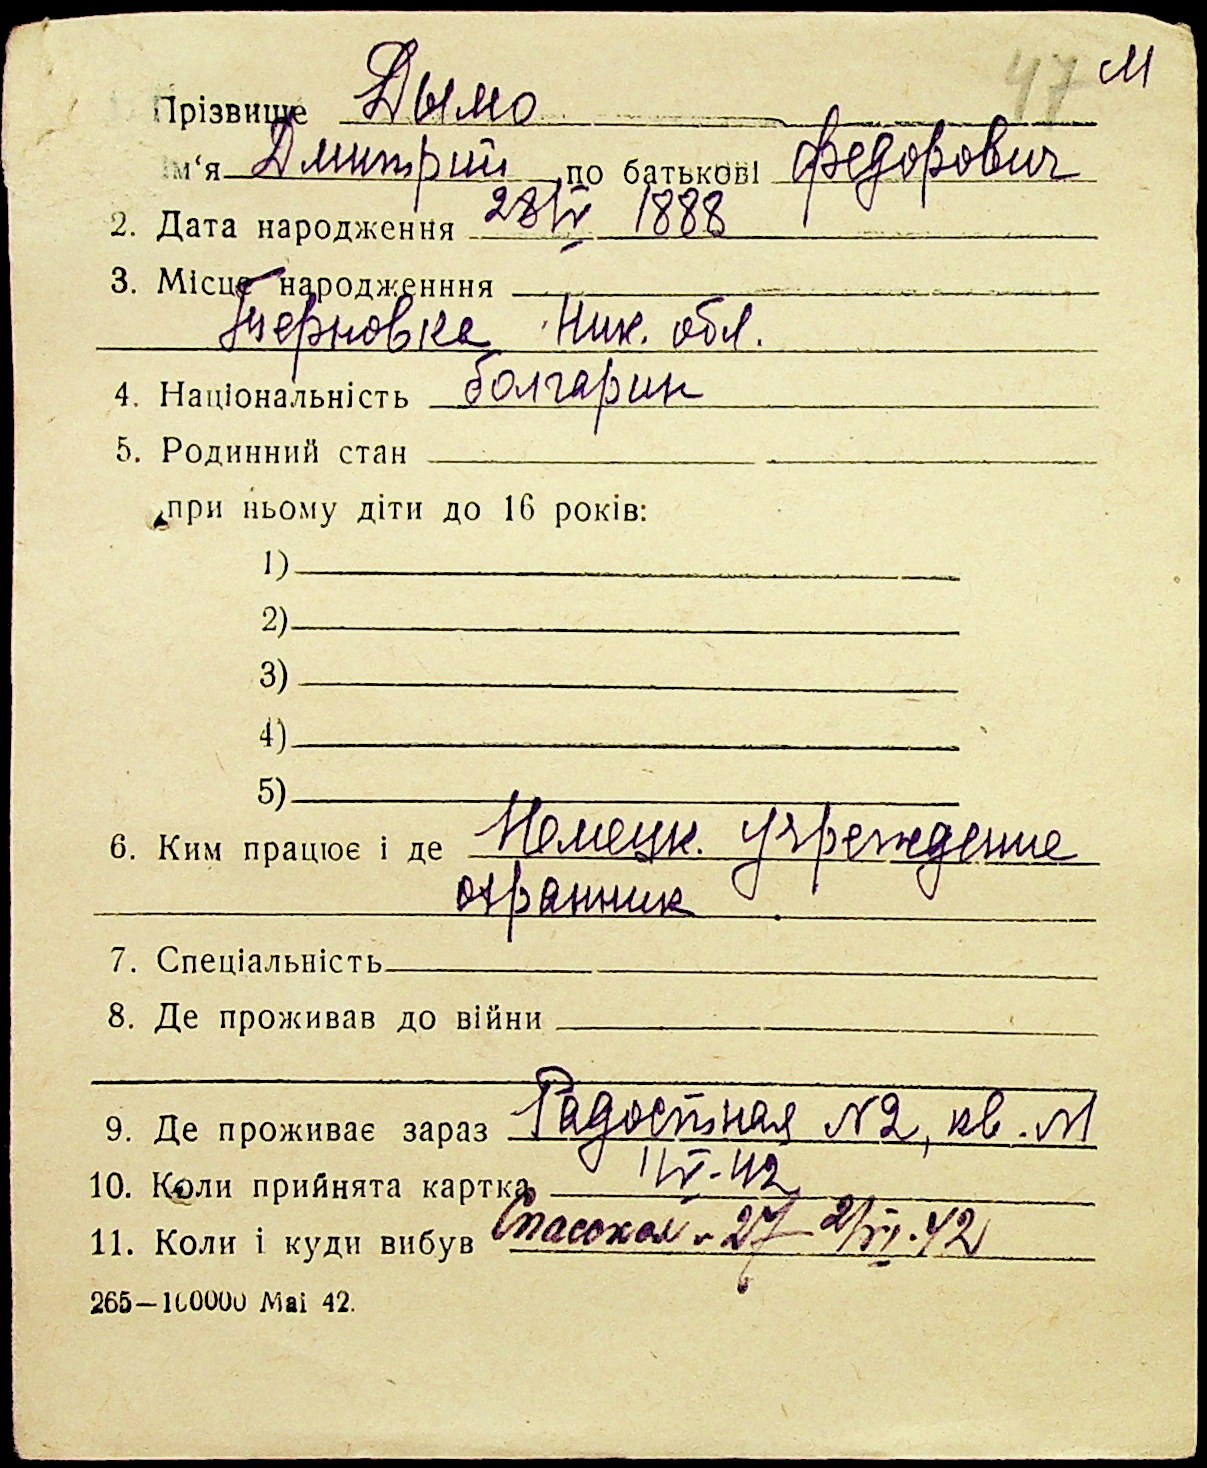 47 М
Прізвище Дымо
Ім‘я Дмитрий по батькові Федорович
2. Дата народження 28/IV 1888
3. Місце народженння
Терновка Ник. обл.
4. Національність болгарин
5. Родинний стан
при ньому діти до 16 років:
1)
2)
3)
4)
5)
6. Ким працює і де Немецк. учреждение
охранник
7. Спеціальність
8. Де проживав до війни
9. Де проживає зараз Радостная N2, кв.
10. Коли прийнята картка
11. Коли і куди вибув 27 42
265—100000 Mai 42.